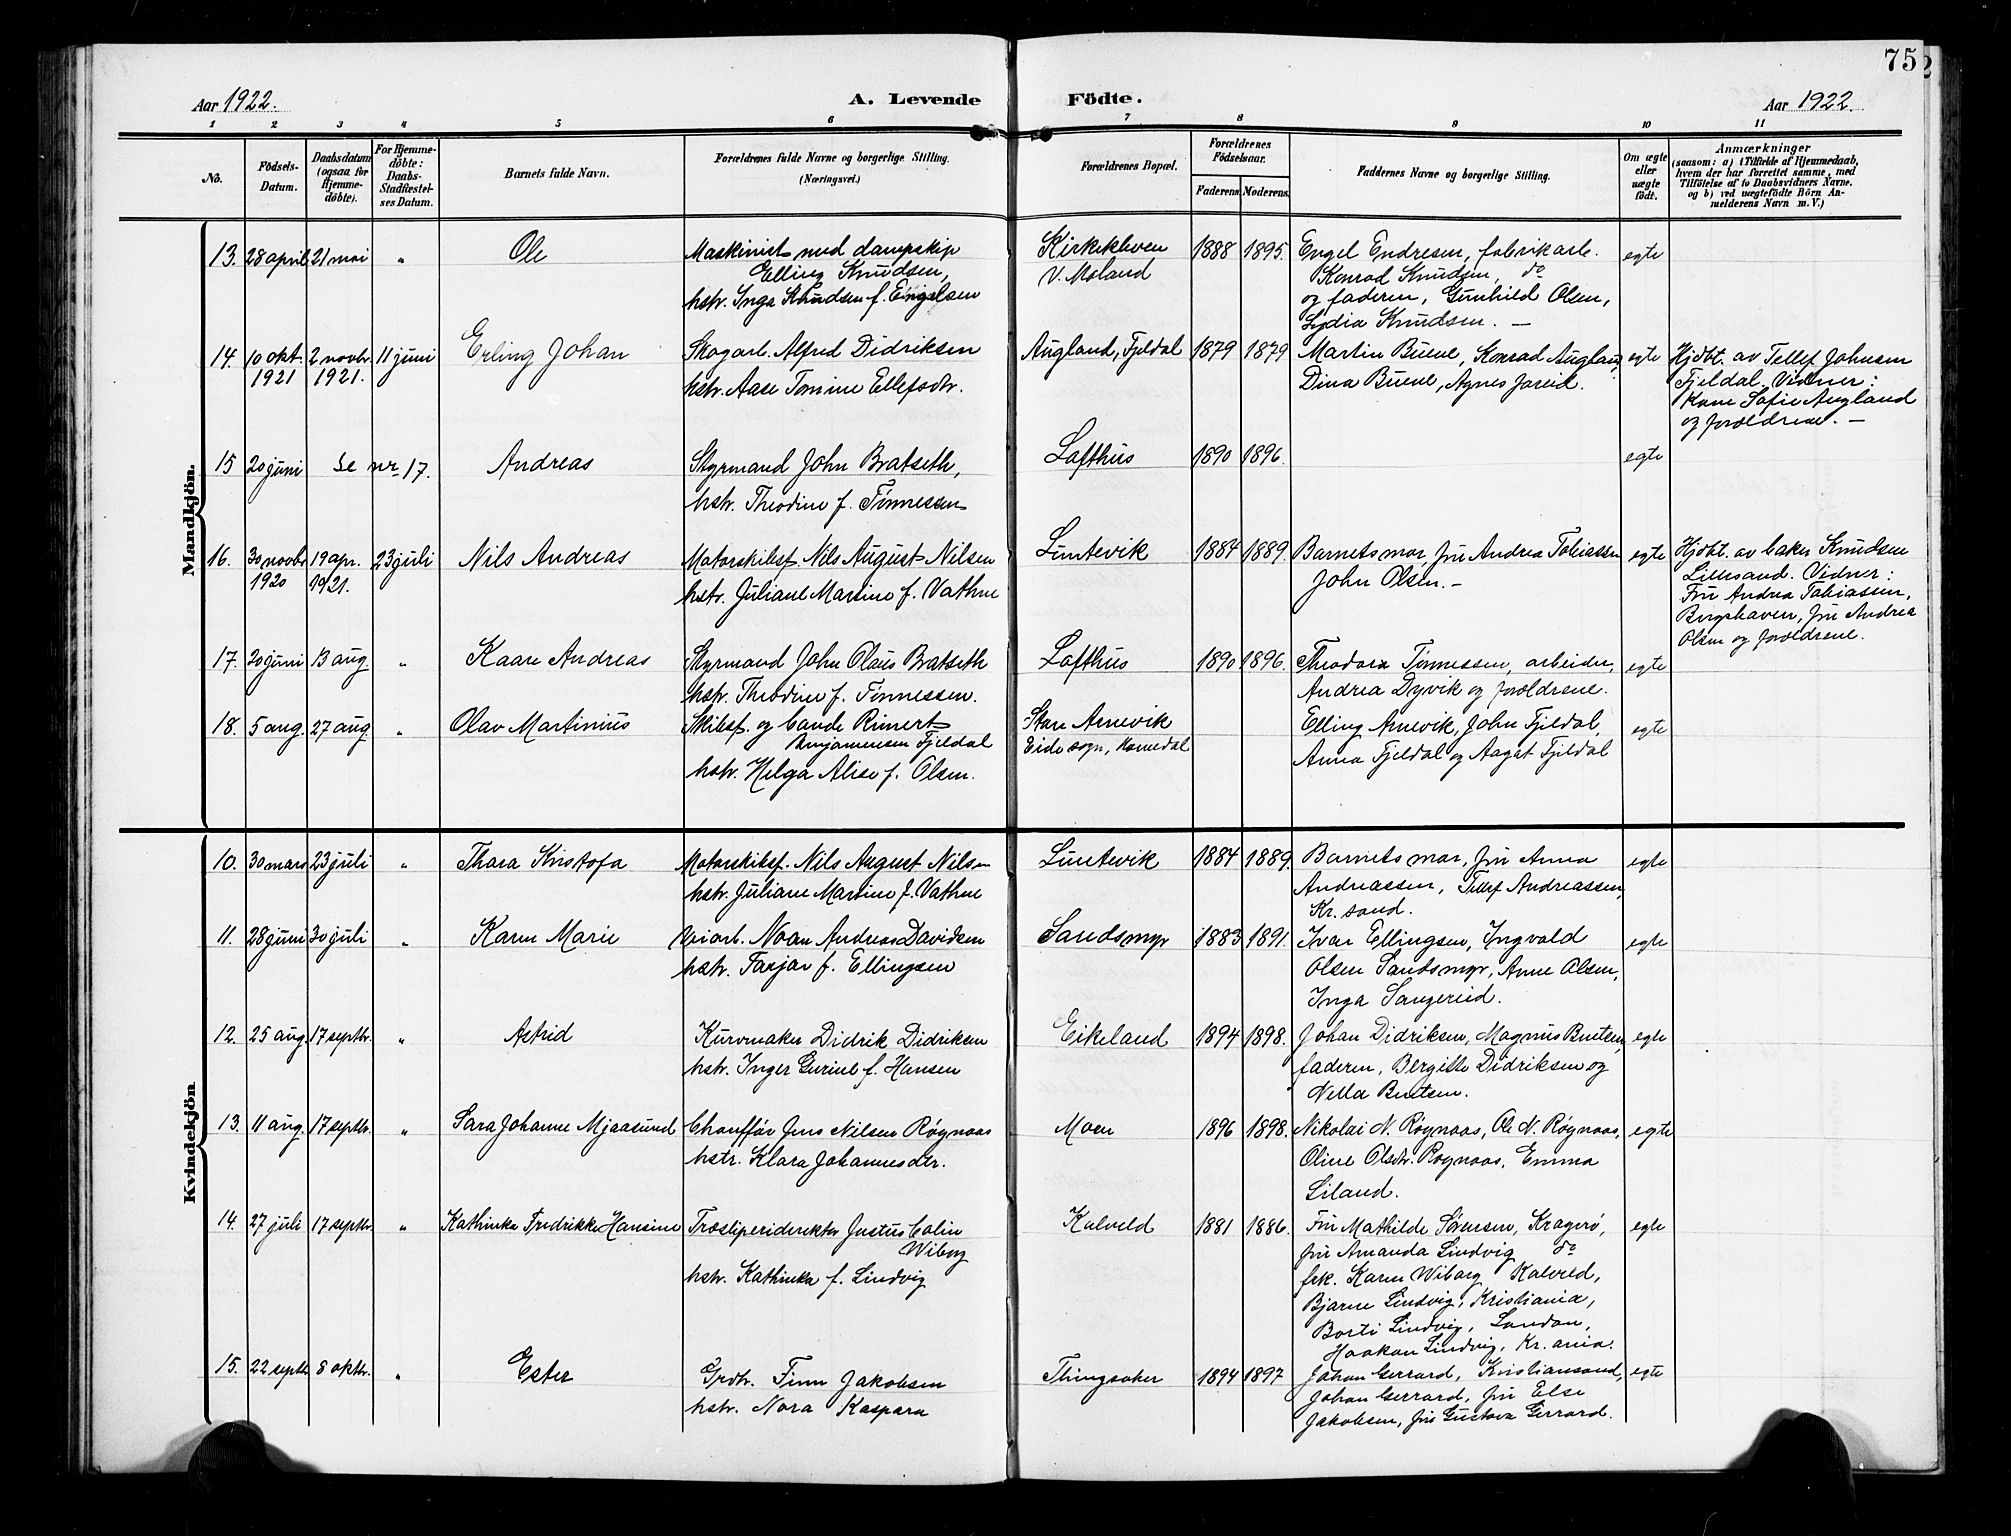 75
Aar 1922.
A. Levende Födte.
Aar 1922.
1 2 3 4 5 6 7 8 9 10 11
No.
Födsels-
Datum.
Daabsdatum
(ogsaa for
Hjemme-
döbte).
For Hjemme-
döbte:
Daabs-
Stadfæstel-
ses Datum.
Barnets fulde Navn.
Forældrenes fulde Navne og borgerlige Stilling.
(Næringsvei.)
Forældrenes Bopæl.
Forældrenes
Födselsaar.
Faderens. Moderens.
Faddernes Navne og borgerlige Stilling.
Om ægte
eller
uægte
födt.
Anmærkninger
(saasom: a) i Tilfælde af Hjemmedaab,
hvem der har forrettet samme, med
Tilföielse af to Daabsvidners Navne.
og b) ved uægtefödte Börn An-
melderens Navn m. V.)
Mandkjön.
13. 28 april 21 mai " Ole
Maskinist med dampskip
Elling Knudsen,
hstr. Inga Knudsen f. Engelsen
Kirkekleven
V. Moland
1888 1895.
Engel Endresen, fabrikarb.
Konrad Knudsen, do
og faderen, Gunhild Olsen,
Lydia Knudsen. —
egte
14. 10 okt. 1921 2 novbr. 1921. 11 juni Erling Johan
Skogarb. Alfred Didriksen
hstr. Aase Tomine Ellefsdtr.
Augland, Fjeldal 1879 1879
Martin Buene, Konrad Augland
Dina Buene, Agnes Jareid.
egte
Hjdbt. av Tellef Johnsen
Fjeldal. Vidner:
Kone Sofie Augland
og forældrene. —
15 20 juni Se nr. 17. Andreas
Styrmand John Bratseth,
hstr. Theodine f. Tönnessen
Lofthus 1890 1896. egte
16. 30 novbr 1920 19 apr. 1921. 23 juli Nils Andreas
Motorskibsf. Nils August Nilsen
hstr. Juliane Martine f. Vathne
Luntevik 1884 1889.
Barnets mor, fru Andrea Tobiassen
John Olsen. —
egte
Hjdbt. av baker Knudsen
Lillesand. Vidner:
Fru Andrea Tobiassen,
Bergshaven, fru Andrea
Olsen og forældrene.
17. 20 juni 13 aug " Kaare Andreas
Styrmand John Olaus Bratseth
hstr. Theodine f. Tönnessen.
Lofthus 1890 1896.
Theodora Tönnessen, arbeider,
Andrea Dyvik og forældrene.
egte
18. 5 aug. 27 aug " Olav Martinius
Skibsf. og bonde Rinert
Benjaminsen Fjeldal
hstr. Helga Alise f. Olsen.
Store Arnevik
Eide sogn, Homedal
Elling Arnevik, John Fjeldal,
Anna Fjeldal og Aagot Fjeldal
egte
Kvindekjön
10. 30 mars 23 juli " Thora Kristofa
Motorskibsf. Nils August Nilsen
hstr. Juliane Martine f. Vathne
Luntevik 1884 1889.
Barnets mor, fru Anna
Andreassen, Tellef Andreassen,
Kr. sand.
egte
11. 28 juni 30 juli " Karen Marie
Veiarb. Noan Andreas Davidsen
hstr. Tarjar f. Ellingsen
Sandsmyr 1883 1891.
Ivar Ellingsen, Ingvald
Olsen Sandsmyr, Anne Olsen,
Inga Sangereid.
egte
12. 25 aug. 17 septbr. " Astrid
Kurvmaker Didrik Didriksen
hstr. Inger Gurine f. Hansen
Eikeland 1894 1898.
Johan Didriksen, Magnus Bentsen,
faderen, Bergitte Didriksen og
Nella Bentsen.
egte
13. 11 aug. 17 septbr. " Sara Johanne Mjaasund
Chauffør Jens Nilsen Røgnaas
hstr. Klara Johannesdtr.
Moen 1896 1898.
Nikolai N. Røgnaas, Ole N. Røgnaas,
Oline Olsdtr. Røgnaas, Emma
Liland.
egte
14. 27 juli 17 septbr. " Kathinka Fredrikke Hansine
Træsliperidirektør Justus Colin
Wiborg
hstr. Kathinka f. Lindvig
Kalveld 1881 1886.
Fru Mathilde Sørensen, Kragerø,
fru Amanda Lindvig do
frk. Karen Wiborg Kalveld,
Bjarne Lindvig, Kristiania,
Borti Lindvig, London,
Haakon Lindvig, Kr.ania.
egte
15. 22 septbr 8 oktbr. " Ester
Grdbr. Finn Jakobsen
hstr. Nora Kaspara
Thingsaker 1894 1897
Johan Gerrard, Kristianssand,
Johan Gerrard, fru Else
Jakobsen, fru Gustava Gerrard.
egte